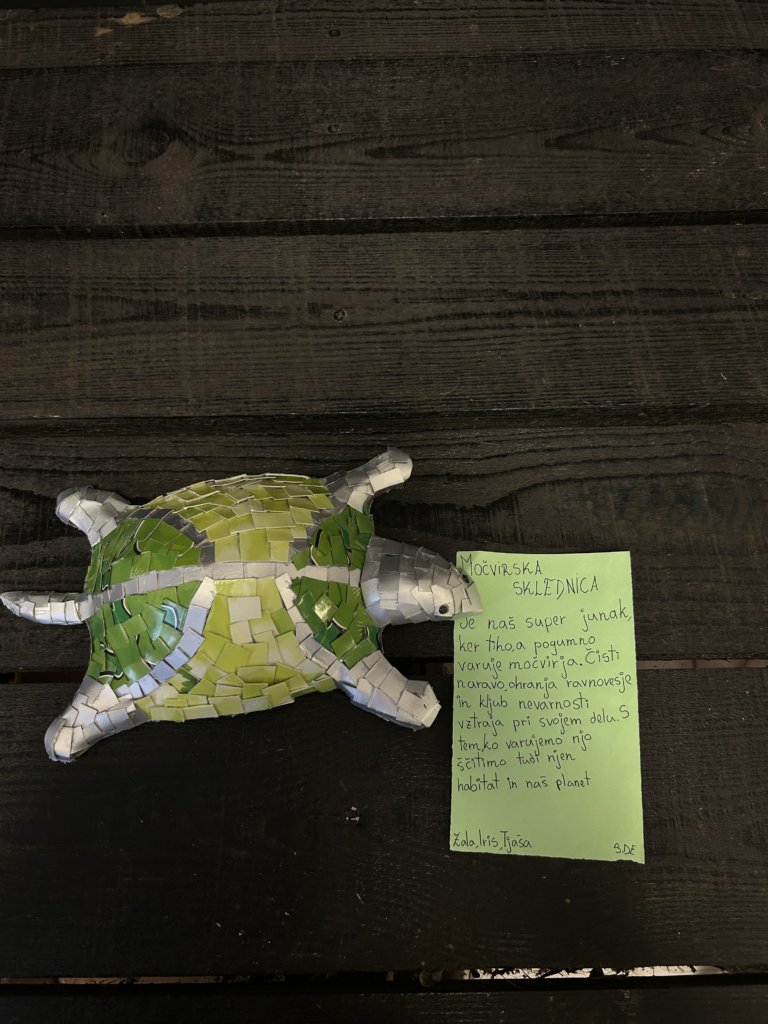 MOČVIRSKA
SKLEDNICA
Je naš super junak,
ker tiho,a pogumno
varuje močvirja. Čisti
naravo,ohranja ravnovesje
in kljub nevarnosti
vztraja pri svojem delu. S
tem,ko varujemo njo
ščitimo tudi njen
habitat in naš planet
Zala,Iris,Tjaša
9.DE